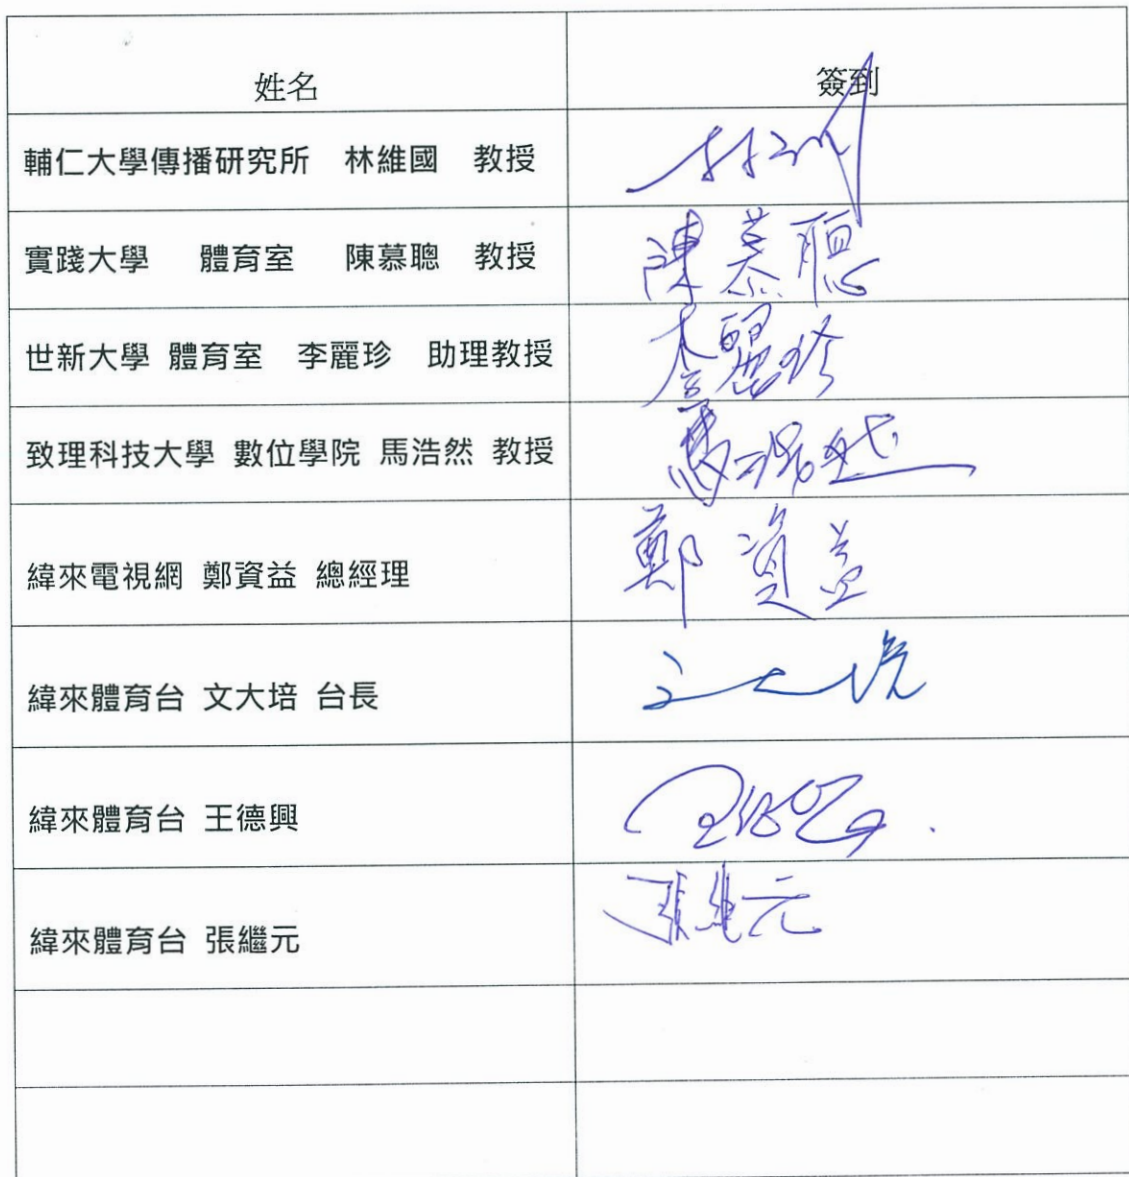 姓名 簽到
輔仁大學傳播研究所 林維國 教授
實踐大學 體育室 陳慕聰 教授 陳慕聰
世新大學 體育室 李麗珍 助理教授 李麗珍
致理科技大學 數位學院 馬浩然 教授 馬浩然
緯來電視網 鄭資益 總經理 鄭資益
緯來體育台 文大培 台長 文大培
緯來體育台 王德興
緯來體育台 張繼元 張繼元